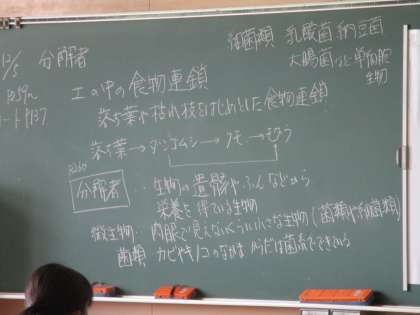 12/5 分解者
ノートP137
土の中の食物連鎖
落ち葉や枯れ枝をはじめとした食物連鎖
落ち葉→ダンゴムシ→クモ→モグラ
分解者 ‥生物の遺骸やふんなどから
栄養を得ている生物
微生物:肉眼で見えないくらい小さな生物(菌類や細菌類)
菌類 カビやキノコのなかま からだは菌糸でできている
細菌類 乳酸菌 納豆菌
大腸菌など単細胞
生物